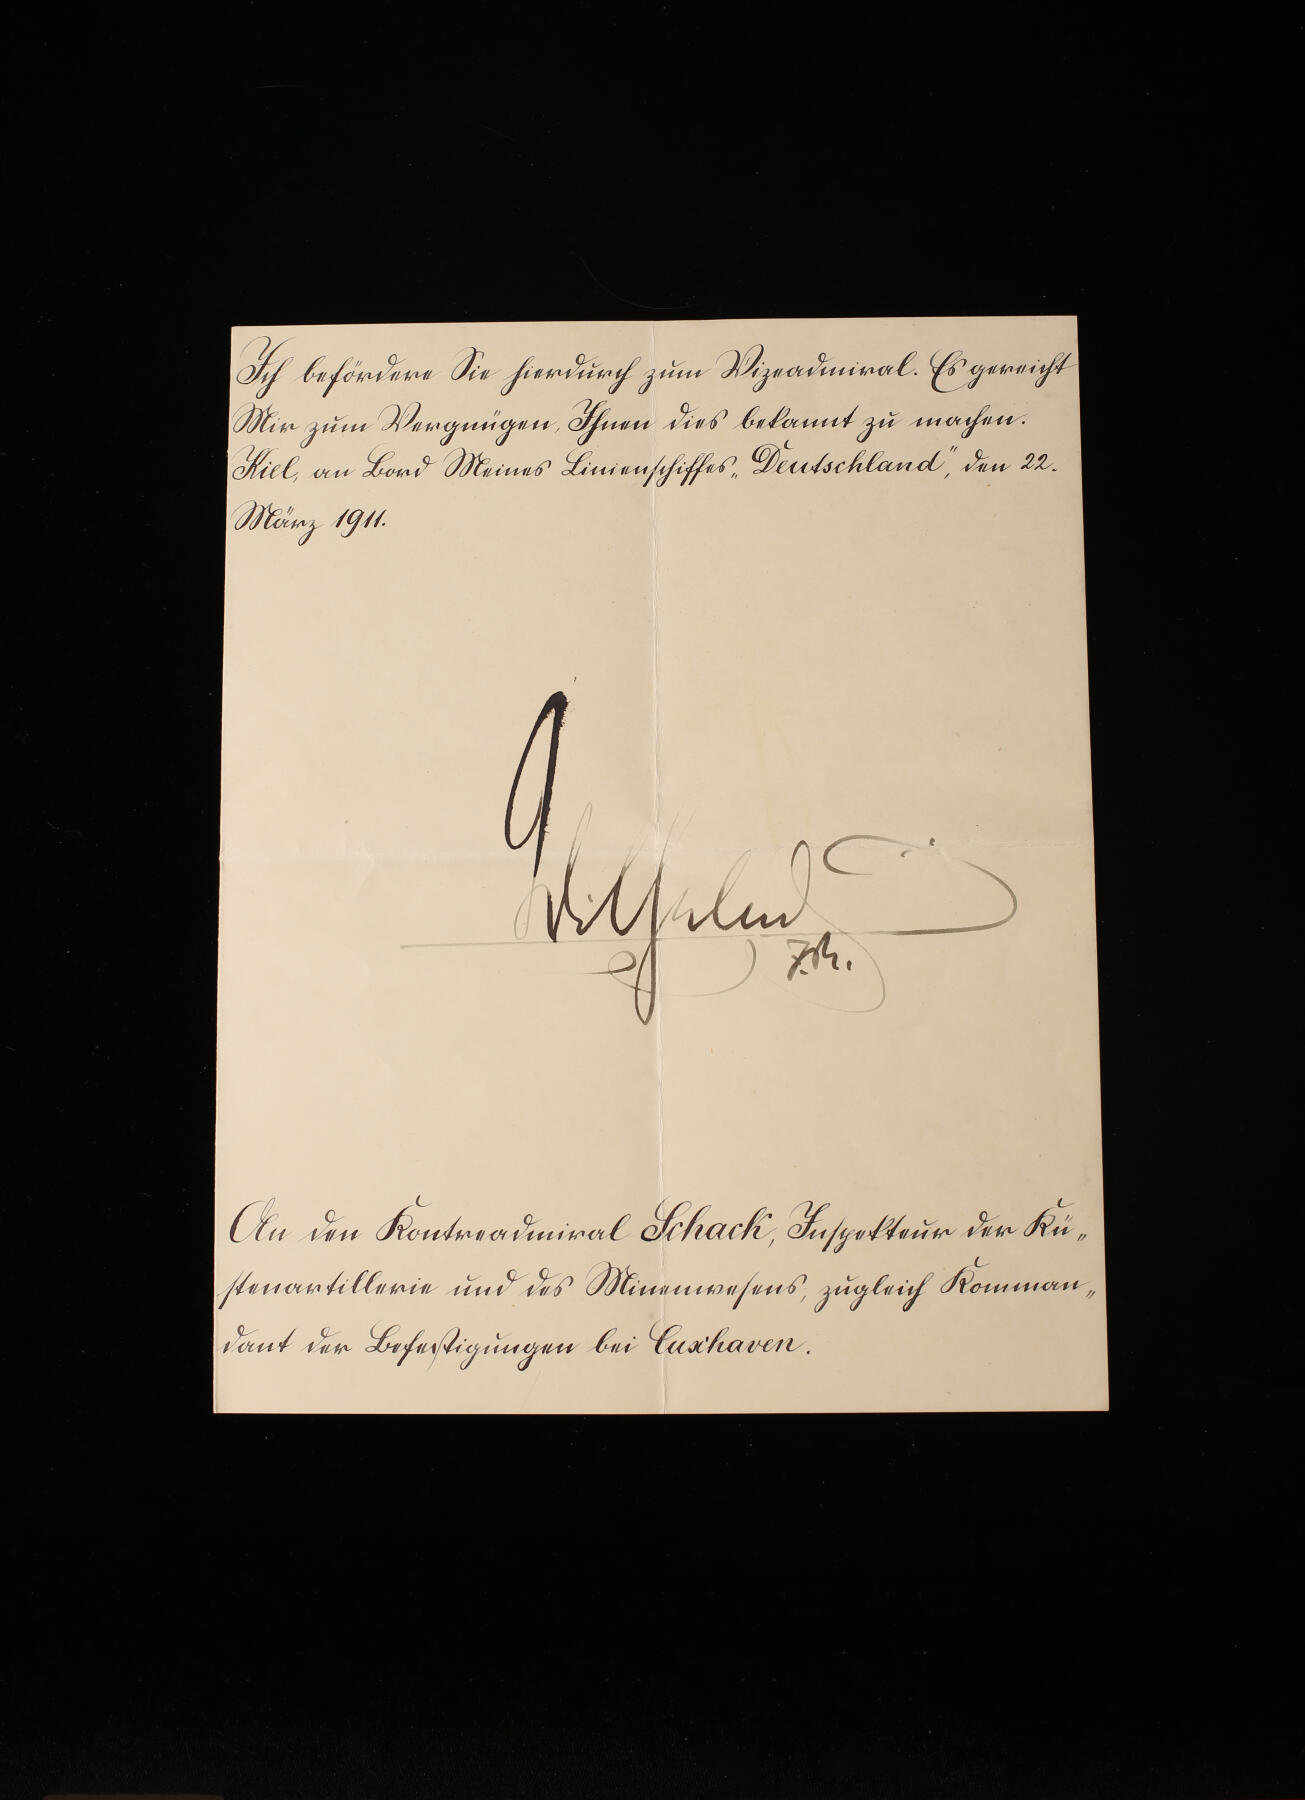 Ich befördere Sie hierdurch zum Vizeadmiral. Es gereicht
Mir zum Vergnügen, Ihnen dies bekannt zu machen.
Kiel, an Bord Meines Linienschiffes „Deutschland“, den 22.
März 1911.
Wilhelm
J.R.
An den Kontreadmiral Schack, Inspekteur der Kü„
stenartillerie und des Minenwesens, zugleich Komman„
dant der Befestigungen bei Cuxhaven.